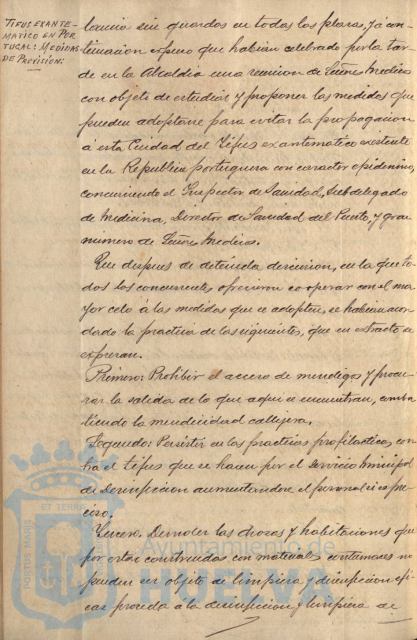 TIFUS EXANTE-
MATICO EN POR
TUGAL: MEDIDAS
DE PREVISION:
sin guardos en todos los plazas, y á con-
tinuacion expuso que habian celebrado por la tar-
de en la Alcaldia una reunion de Señores Medicos
con objeto de estudiar y proponer las medidas que
pueden adoptarse para evitar la propagacion
á esta Ciudad del Tifus exantematico existente
en la Republica portuguesa con caracter epidemico,
concurriendo el Inspector de Sanidad, Subdelgado
de Medicina, Director de Sanidad del Puerto, y gran
numero de Señores Medicos.
Que despues de detenida discusion, en la que to-
dos los concurrentes ofrecieron cooperar con el ma-
yor celo á las medidas que se adopten, se habian acor-
dado la practica de las siguientes, que en extracto se
expresan.
Primero: Prohibir el acceso de mendigos y procu-
rar la salida de los que aqui se encuentran, comba-
tiendo la mendicidad callejera.
Segundo: Persistir en las practicas profilacticas con-
tra el tifus que se hacen por el Servicio Municipal
de Desinfeccion aumentandose el personal si es pre-
ciso.
Tercero: Demoler las chozas y habitaciones que
por estar construidas con materiales no
pueden ser objeto de limpieza y desinfeccion efi-
caz, proceda á la desinfeccion y limpieza de
Ayuntamiento de
HUELVA
PORTUS MARIS ET TERRÆ